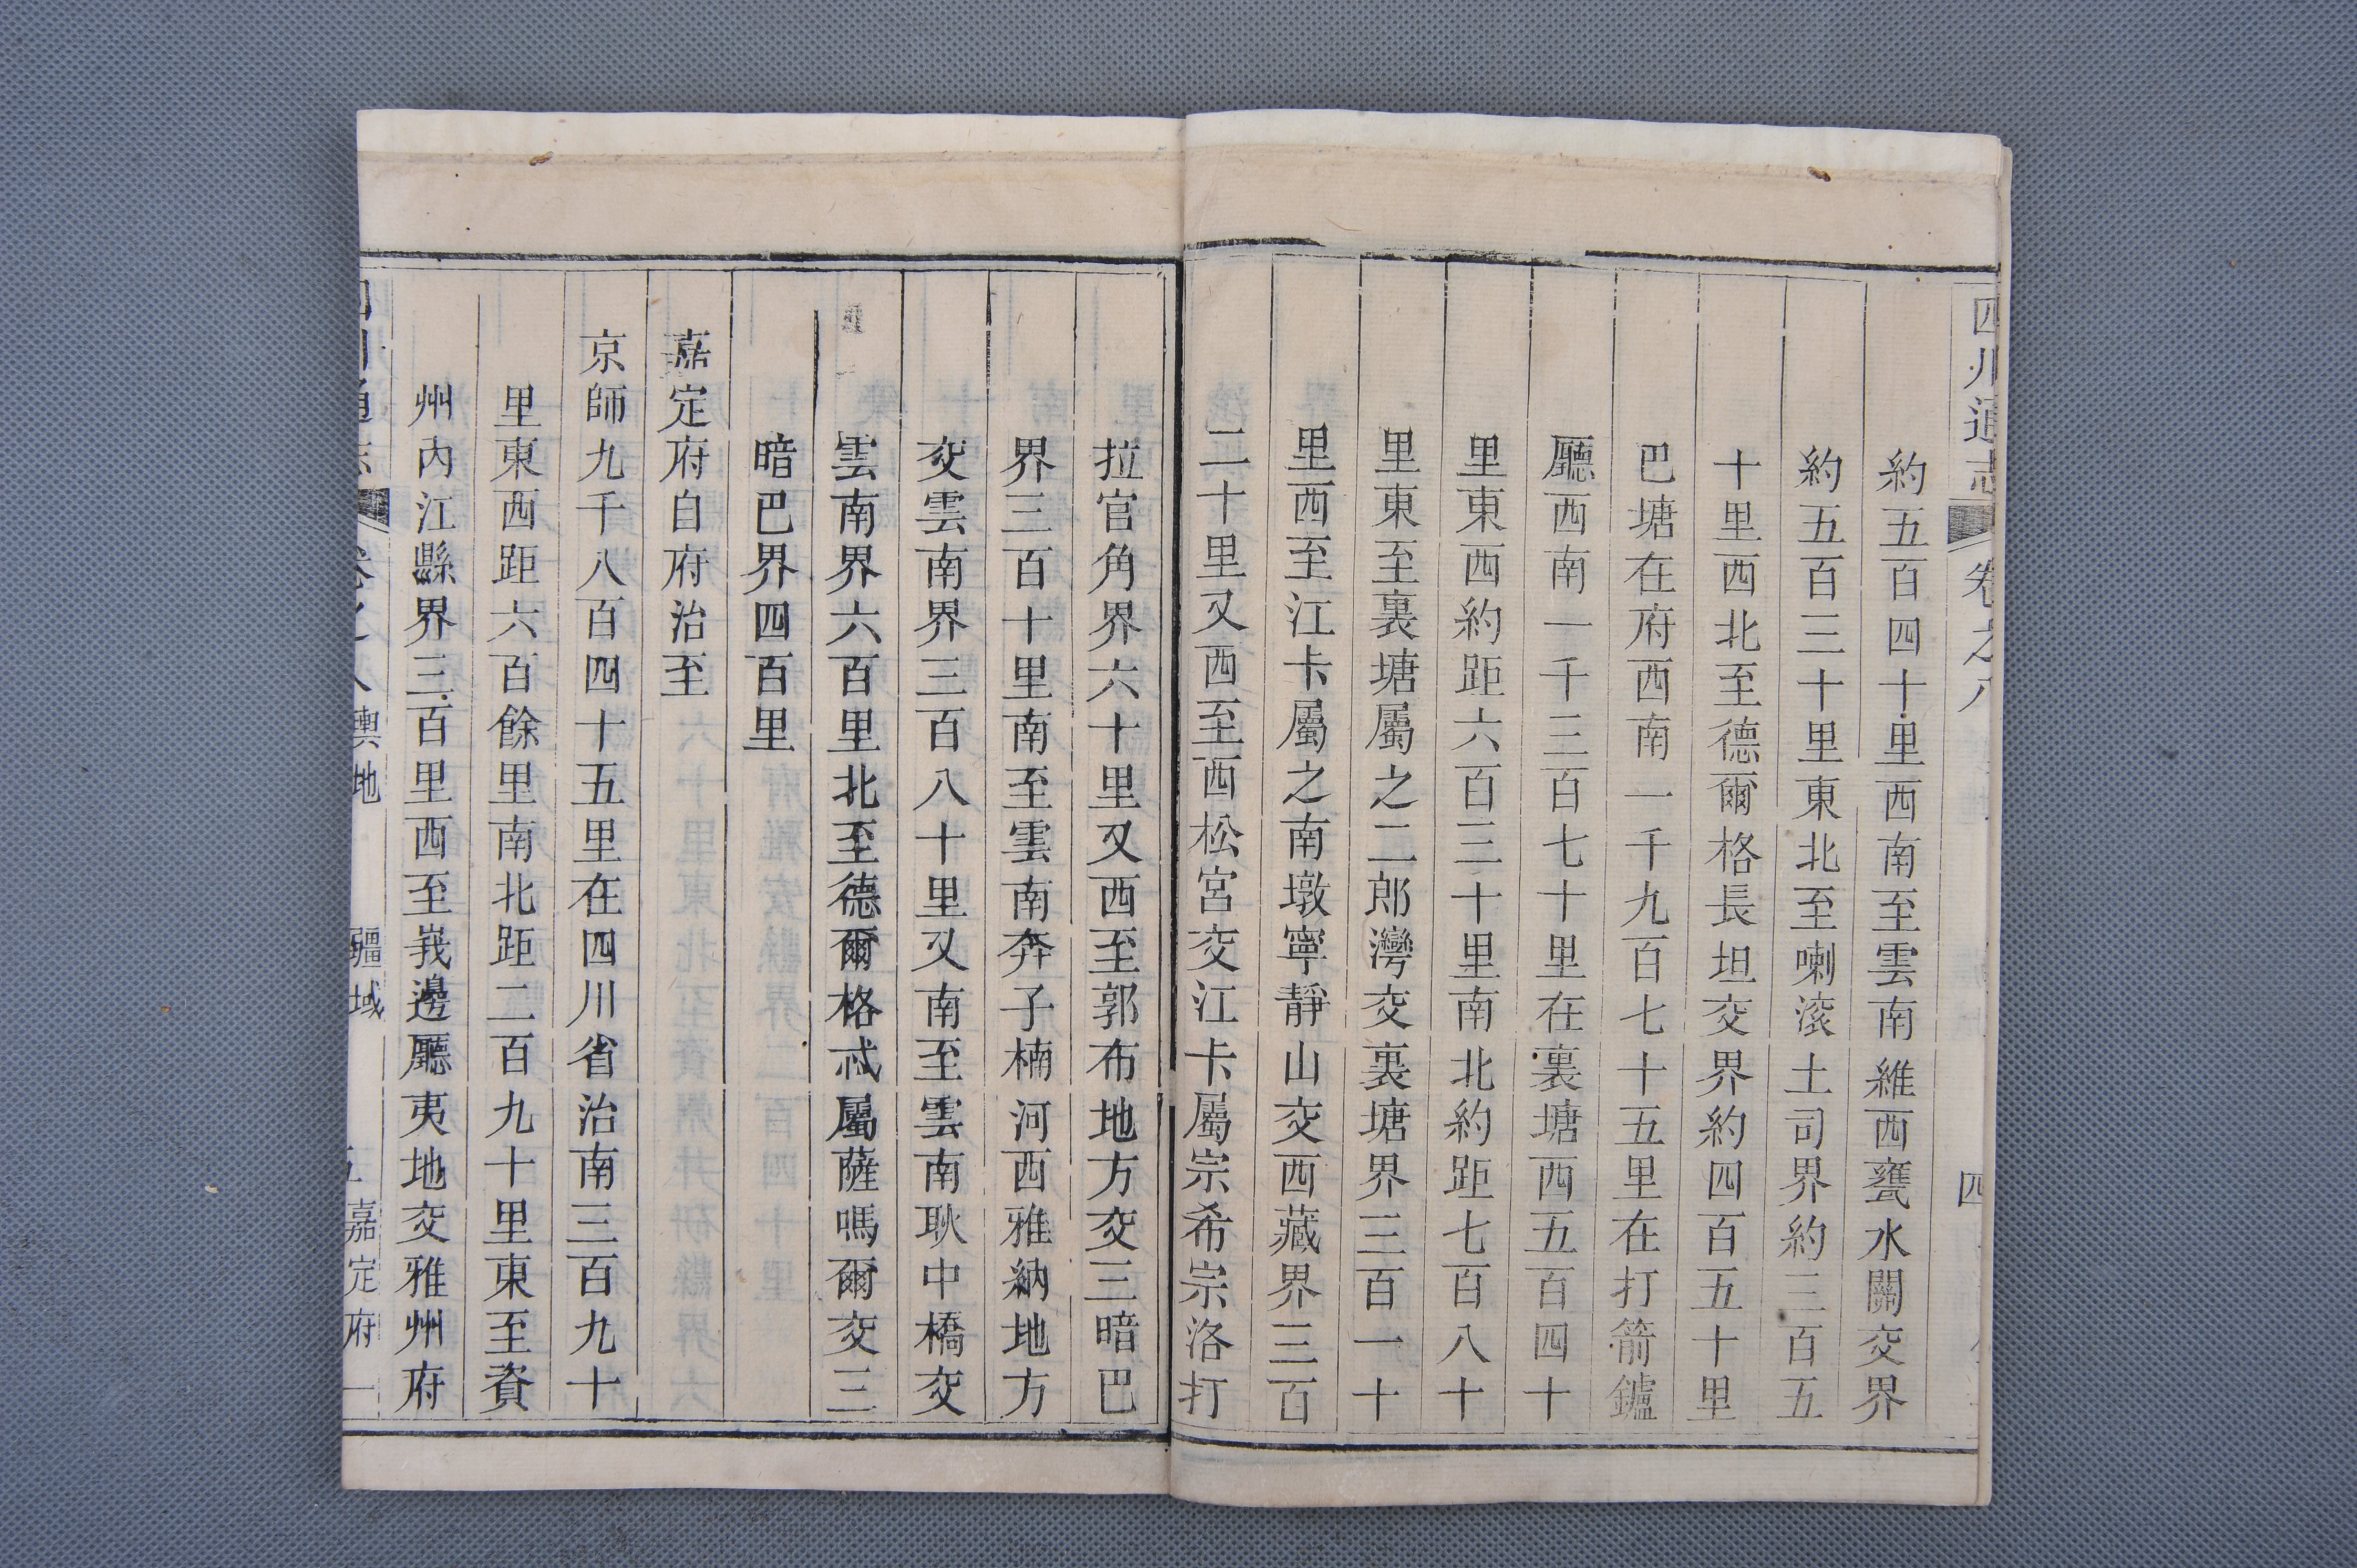 四川通志 卷之八 四
約五百四十里西南至雲南維西甕水關交界
約五百三十里東北至喇滾土司界約三百五
十里西北至德爾格長坦交界約四百五十里
巴塘在府西南一千九百七十五里在打箭鑪
廳西南一千三百七十里在裏塘西五百四十
里東西約距六百三十里南北約距七百八十
里東至裏塘屬之二郎灣交裏塘界三百一十
里西至江卡屬之南墩寧靜山交西藏界三百
二十里又西至西松宮交江卡屬宗希宗洛打
拉官角界六十里又西至郭布地方交三暗巴
界三百十里南至雲南奔子楠河西雅納地方
交雲南界三百八十里又南至雲南耿中橋交
雲南界六百里北至德爾格忒屬薩嗎爾交三
暗巴界四百里
嘉定府自府治至
京師九千八百四十五里在四川省治南三百九十
里東西距六百餘里南北距二百九十里東至資
州內江縣界三百里西至峩邊廳夷地交雅州府
四川通志 卷之八 輿地 疆域 五 嘉定府 一